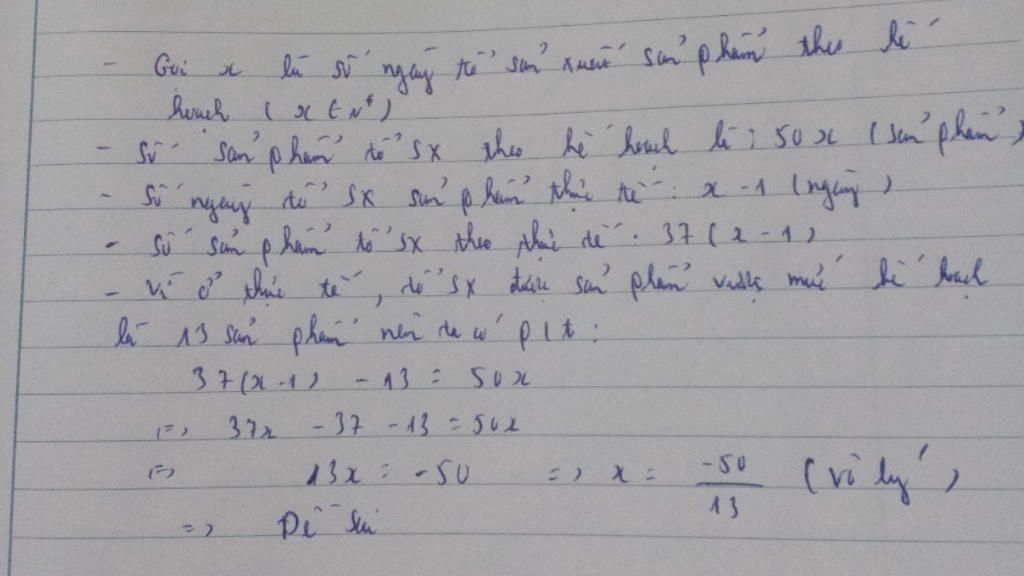 - Gọi x là số ngày tổ sản xuất sản phẩm theo kế
hoạch ( x ∈ N* )
- Số sản phẩm tổ SX theo kế hoạch là : 50x ( sản phẩm )
- Số ngày tổ SX sản phẩm thực tế : x - 1 ( ngày )
- Số sản phẩm tổ SX theo thực tế : 37 ( x - 1 )
- Vì ở thực tế , tổ SX được sản phẩm vượt mức kế hoạch
là 13 sản phẩm nên ta có p/t :
37(x-1) - 13 = 50x
<=> 37x - 37 - 13 = 50x
<=> 13x = -50 => x = -50/13 ( vô lý )
=> Đề sai